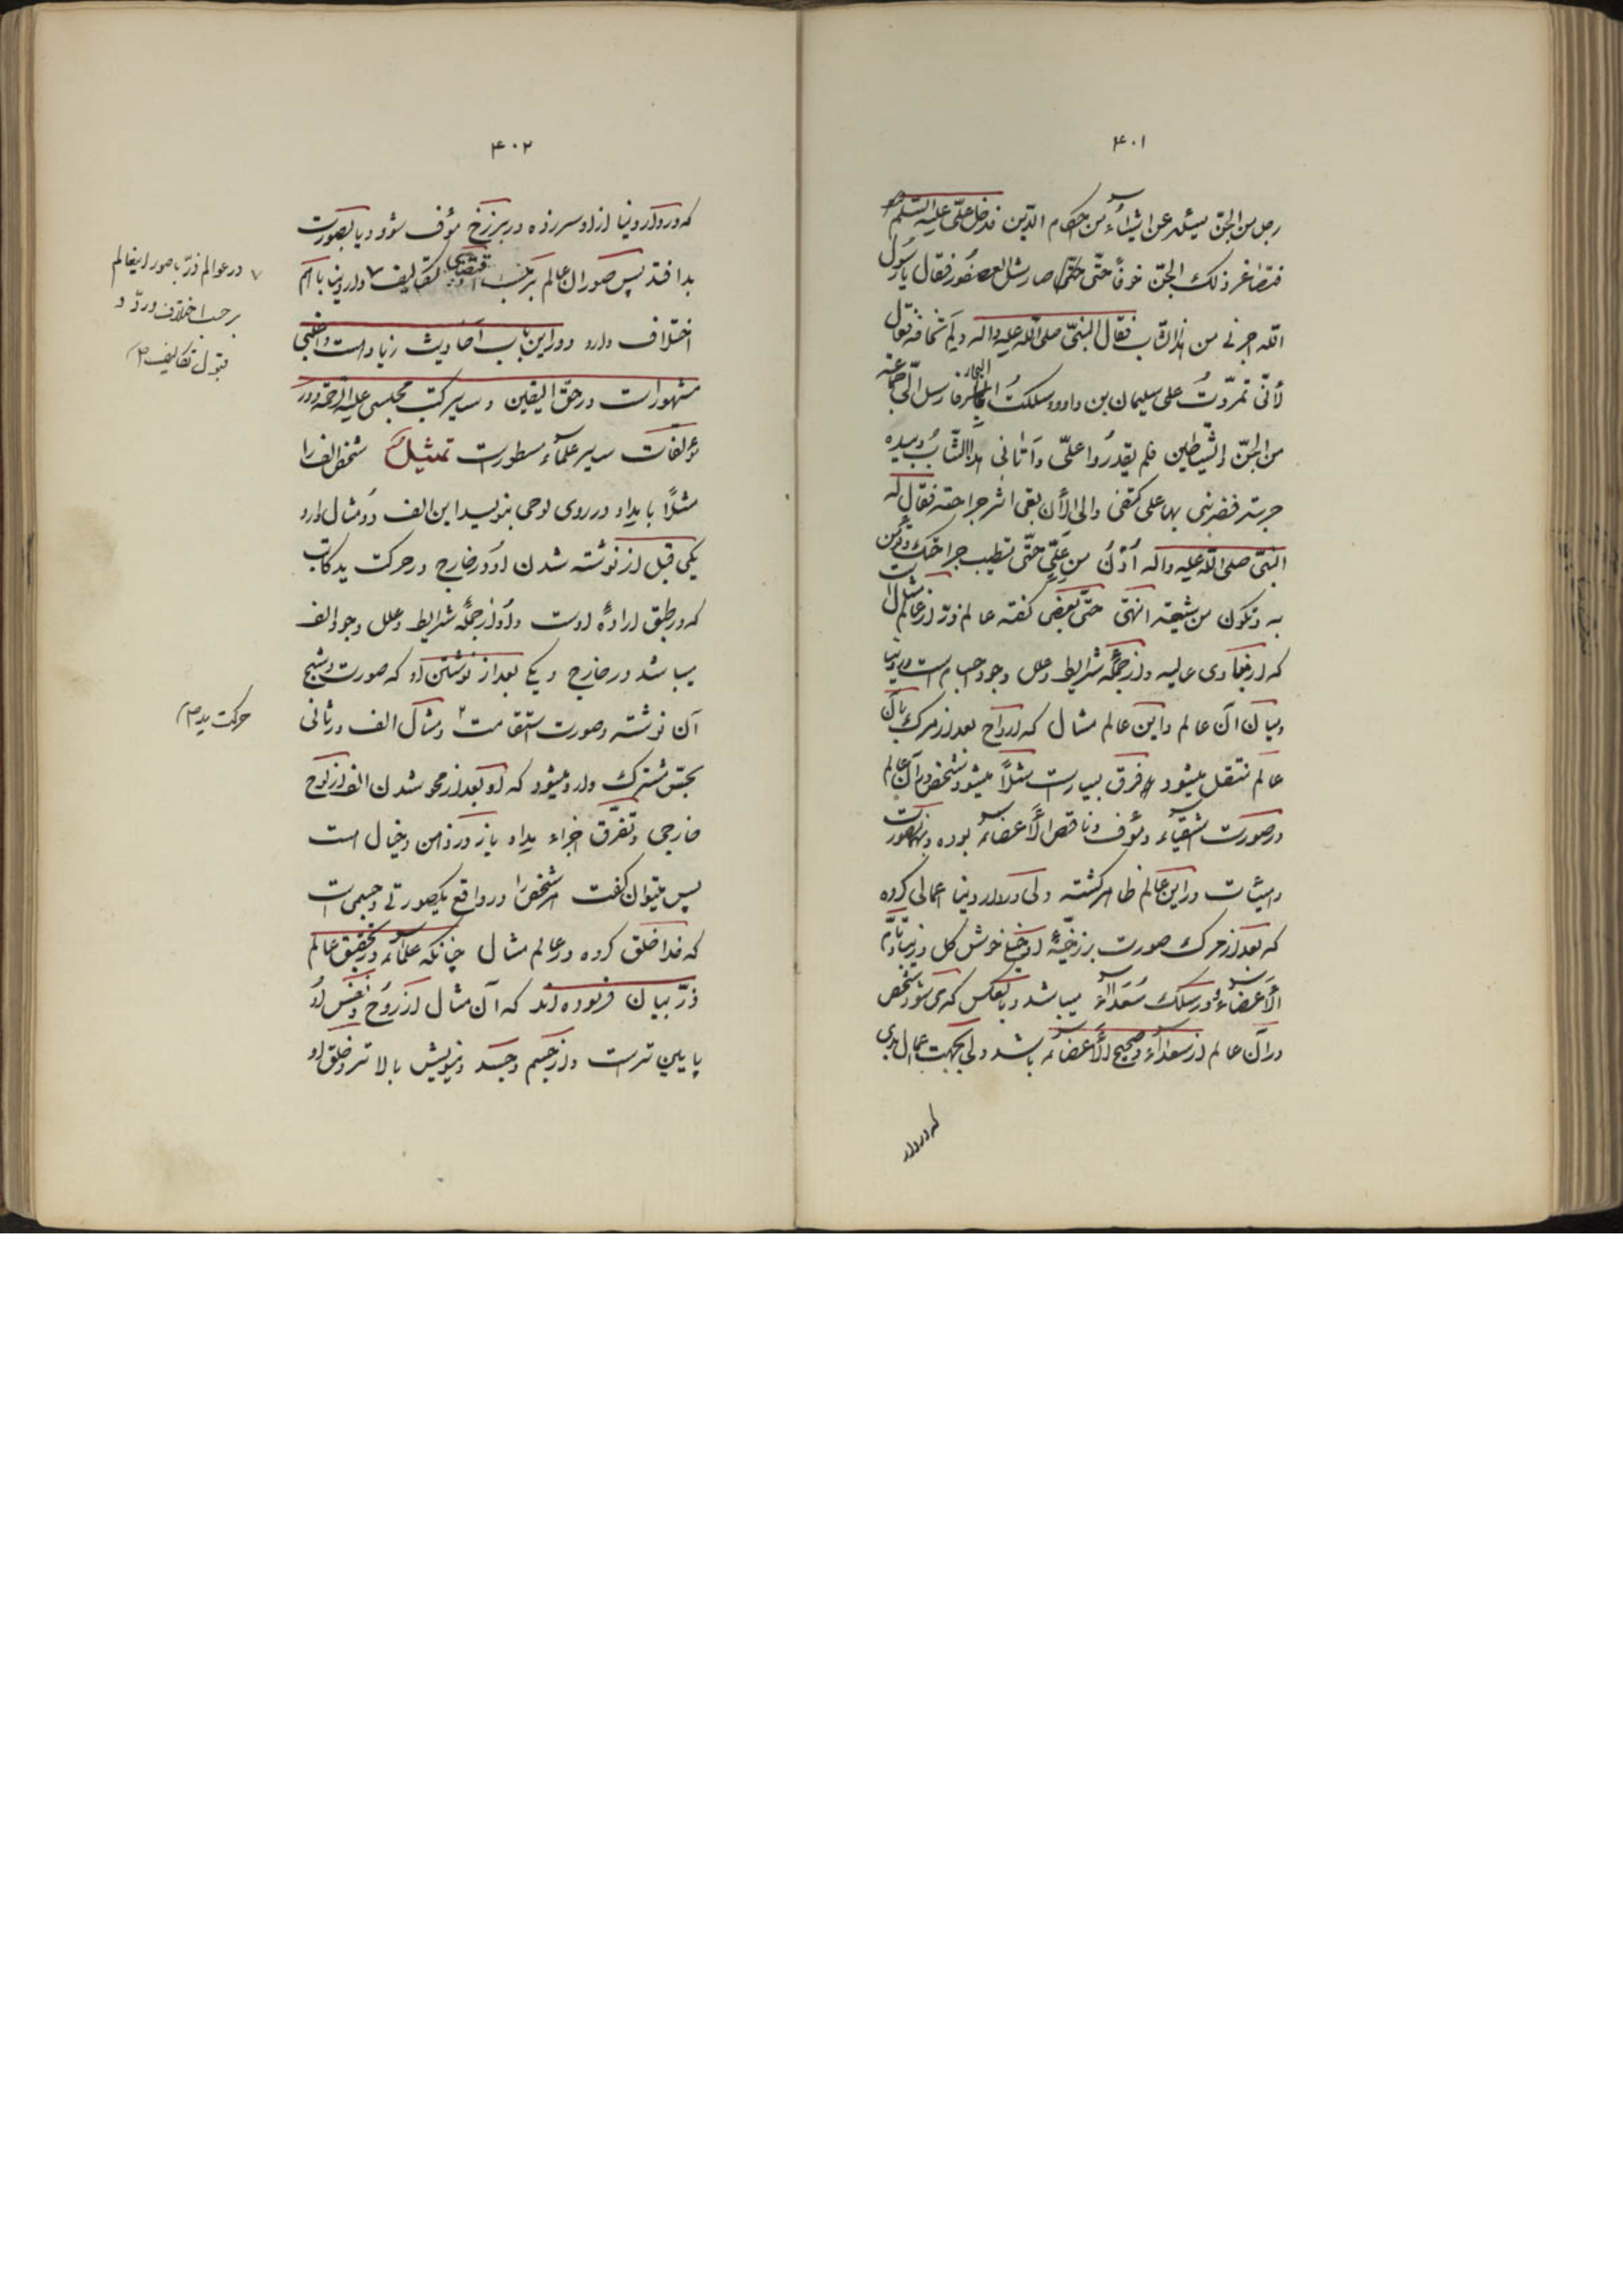 ۴۰۱
رجل من الجنّ یسئله عن اشیاء من احکام الدّین فدخل علیّ علیه السّلم
فتصاغر ذلک الجنّ خوفاً حتّی صار مثل العصفور فقال یا رسول
اللّه اجرنی من هذا الشّاب فقال النبیّ صلی اللّه علیه واله ولم تخافه فقال
لأنّی تمرّدت علی سلیمان بن داود و سلکت البحار فارسل الیّ جماعة
من الجنّ و الشّیاطین فلم یقدروا علیّ و اتانی هذا الشّاب و بیده
حربة فضربنی بها علی کتفی و الی الأن بقی اثر جراحته فقال له
النبیّ صلی اللّه علیه واله اُدنُ من علیّ حتّی تطیب جراحتک و تؤمن
به و تکون من شیعته انتهی حتّی بعضی گفته عالم ذرّ از عالم مثال است
که از مبادی عالیه و از جملهٔ شرایط و علل وجود اجسام است در دنیا
و میان آن عالم و این عالم مثال که ارواح بعد از مرگ بآن
عالم منتقل میشود فرق بسیار است مثلاً میشود شخص در آن عالم
در صورت اشقیاء و مؤف و ناقص الأعضاء بوده و بهمان صورت
و هیئات در این عالم ظاهر گشته ولی در دار دنیا اعمالی کرده
که بعد از مرگ صورت برزخیّهٔ او خیلی خوش گل و زیبا و تامّ
الأعضاء و در سلک سعداء میباشد و بالعکس که می شود شخص
در آن عالم از سعداء و صحیح الأعضاء باشد ولی بجهت اعمال بدی
که در دار
۴۰۲
که در دار دنیا از او سر زده در برزخ مؤف شود و یا بصورت
بد افتد پس صور ان عالم بر حسب اقتضای تکالیف دار دنیا با هم
اختلاف دارد و در این باب احادیث زیاد است و اغلبی
مشهور است در حقّ الیقین و سایر کتب مجلسی علیه الرّحمه و در
مؤلفات سایر علماء مسطور است تمثیلٌ شخص الف را
مثلاً با مداد در روی لوحی بنویسد این الف دو مثال دارد
یکی قبل از نوشته شدن او در خارج در حرکت ید کاتب
که در طبق ارادهٔ اوست و او از جملهٔ شرایط و علل وجود الف
میباشد در خارج و یکی بعد از نوشتن او که صورت و شبح
آن نوشته و صورت استقامت و مثال الف در ثانی
بحسّ مشترک وارد میشود که او بعد از محو شدن الف از لوح
خارجی و تفرّق اجزاء مداد باز در ذهن و خیال است
پس میتوان گفت هر شخص را در واقع یک صورتی و جسمی است
که خدا خلق کرده در عالم مثال چنانکه علماء در تحقیق عالم
ذرّ بیان فرموده اند که آن مثال از روح و نفس او
پایین تر است و از جسم و جسد دنیویش بالاتر و خلق او
در عوالم ذرّ با صور اینعالم
بر حسب اختلاف در ردّ و
قبول تکالیف
حرکت ید